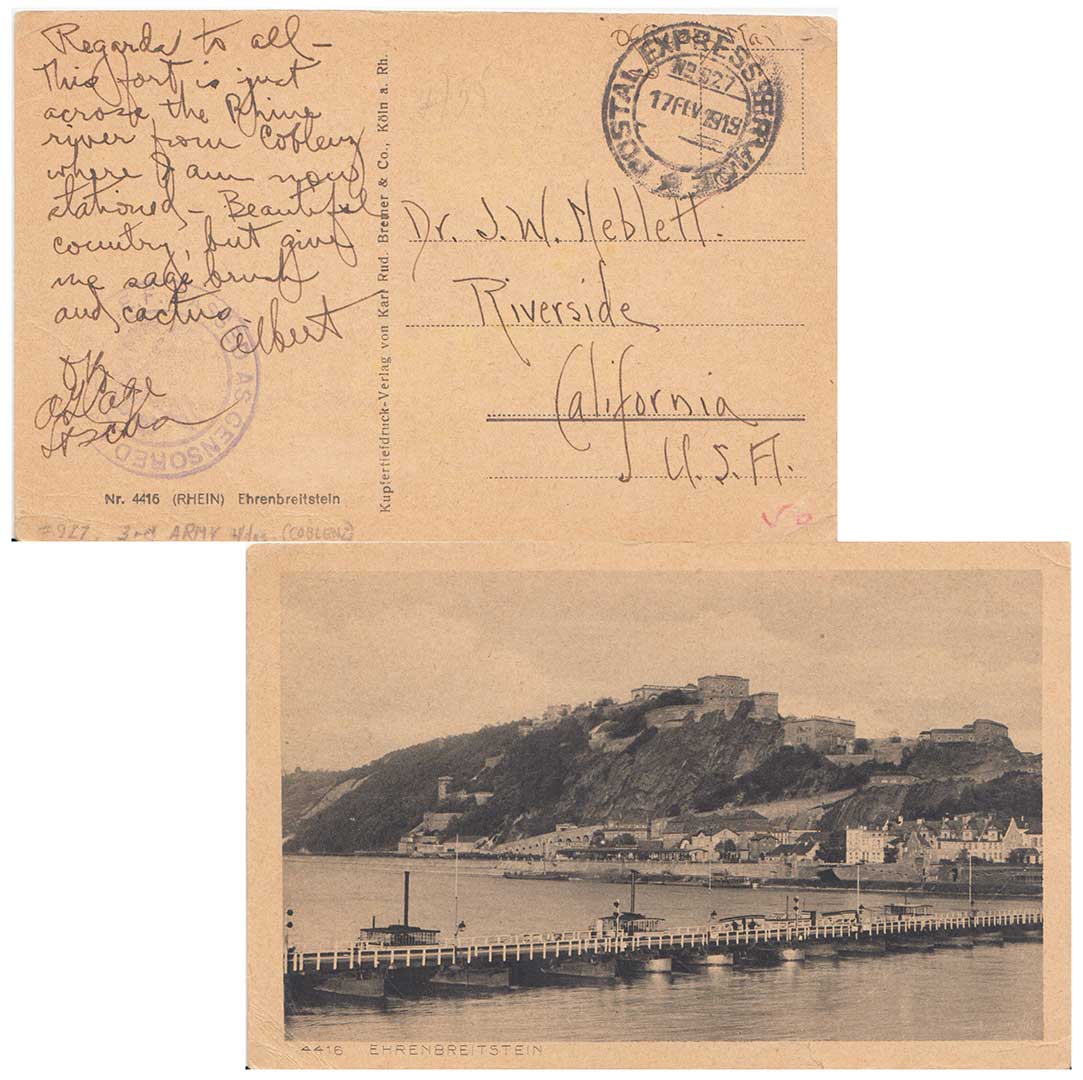 Regards to all –
This fort is just
across the Rhine
river from Coblenz
where I am now
stationed – Beautiful
country, but give
me sage brush
and cactus
Albert
OK
A.E.F. PASSED AS CENSORED
Nr. 4416 (RHEIN) Ehrenbreitstein
#927. 3rd ARMY Hdqs (COBLENZ)
Kupfertiefdruck-Verlag von Karl Rud. Bremer & Co., Köln a. Rh.
Mail
POSTAL EXPRESS SERVICE
No 927
17 FEV 1919
Dr. J. W. Neblett.
Riverside
California
U.S.A.
4416 EHRENBREITSTEIN